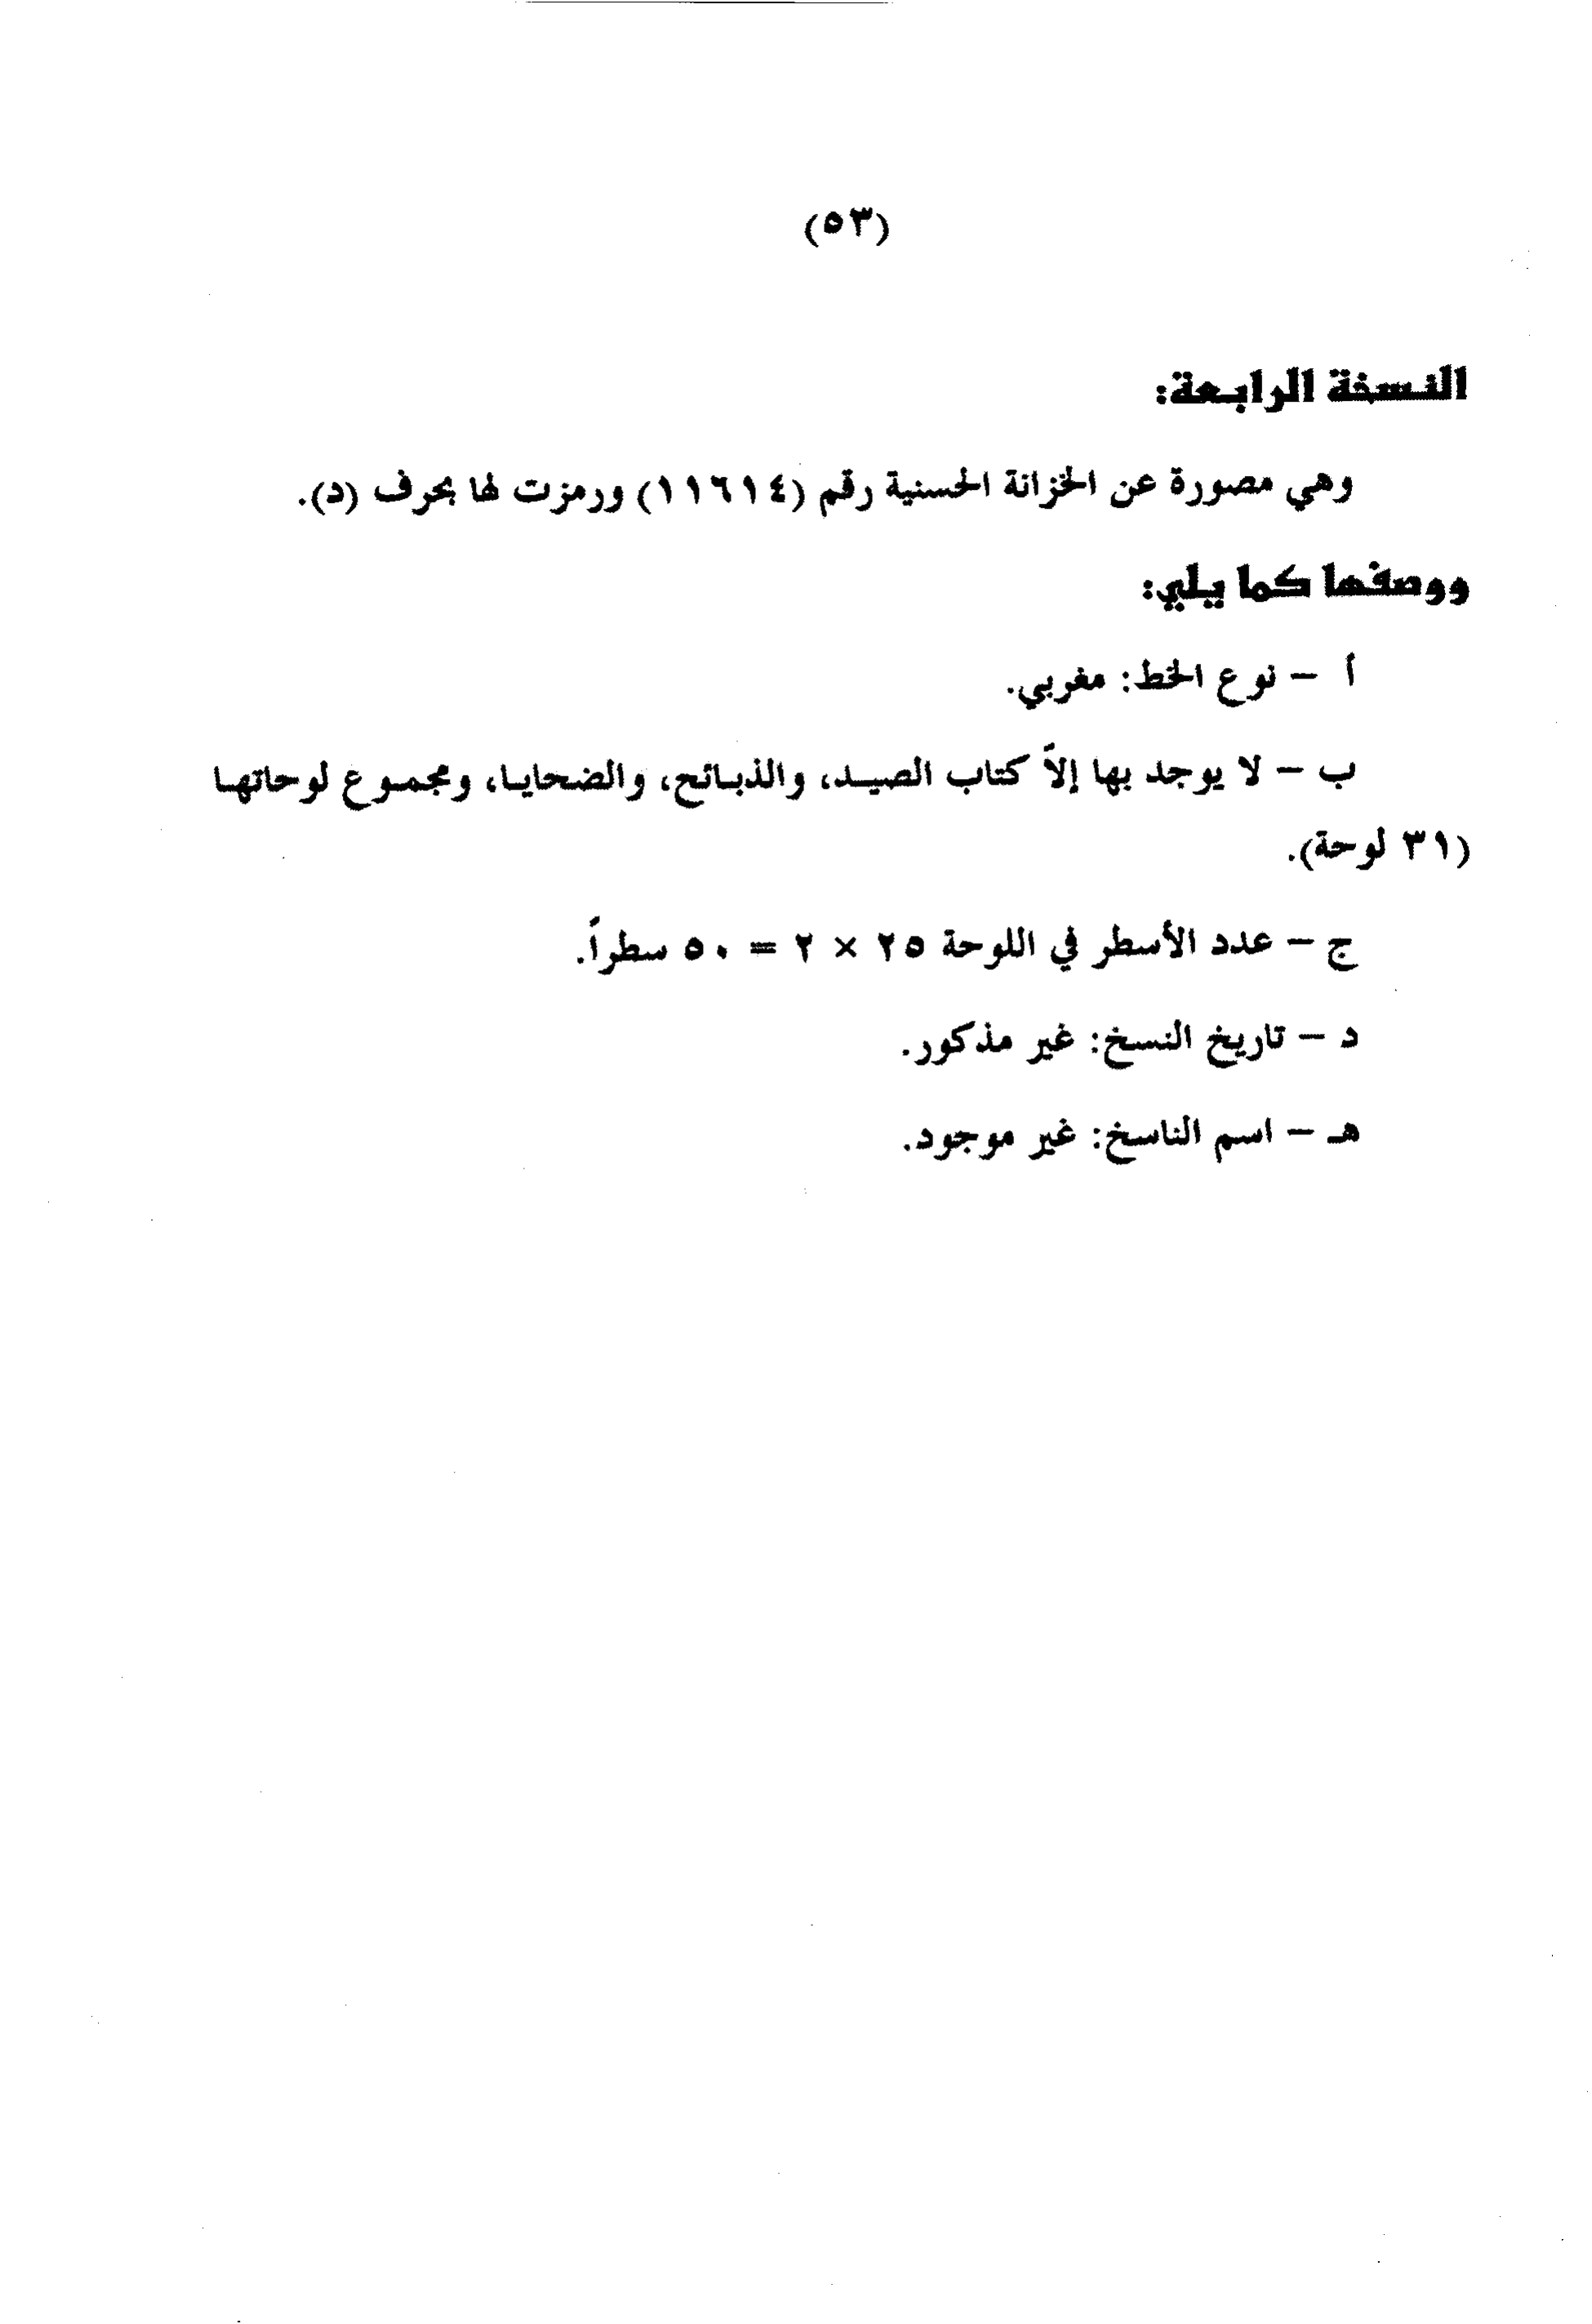 (٥٣)
النسخة الرابعة:
وهي مصورة عن الخزانة الحسنية رقم (١١٦١٤) ورمزت لها بحرف (د).
ووصفها كما يلي:
أ – نوع الخط: مغربي.
ب – لا يوجد بها إلاّ كتاب الصيد، والذبائح، والضحايا، ومجموع لوحاتها
(٣١ لوحة).
ج – عدد الأسطر في اللوحة ٢٥ × ٢ = ٥٠ سطراً.
د – تاريخ النسخ: غير مذكور.
هـ – اسم الناسخ: غير موجود.